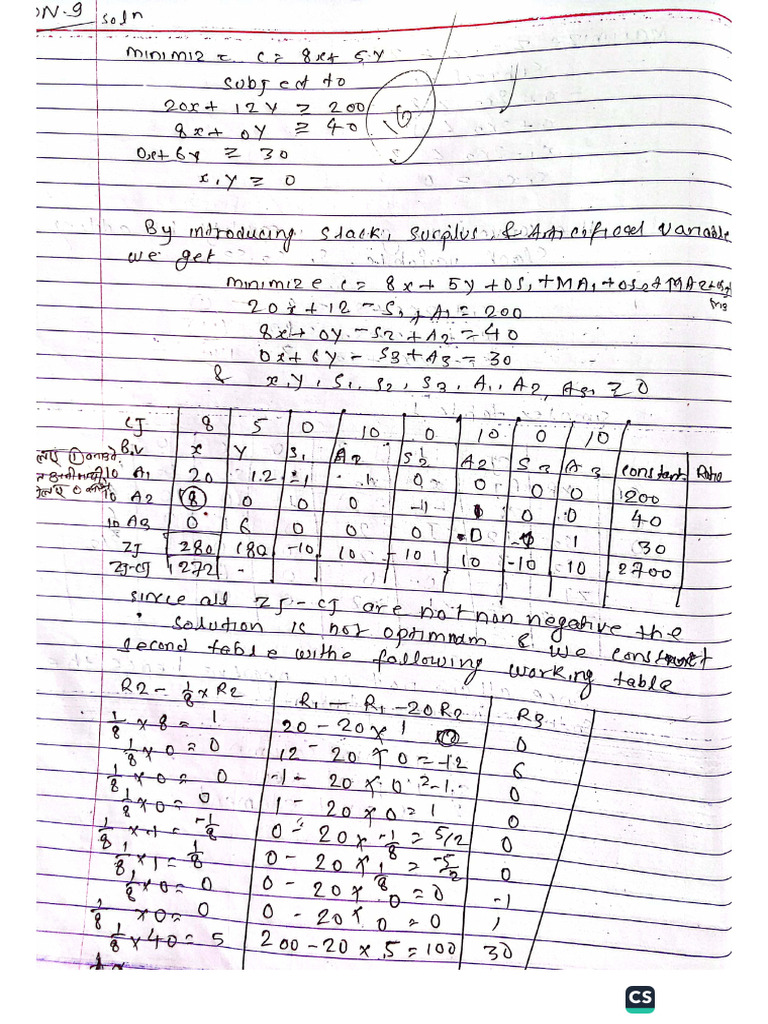 ON-9 soln
minimize c = 8x+ 5y
subject to
20x+ 12y ≥ 200
8x+ 0y ≥ 40
0x+6y ≥ 30
x,y ≥ 0
By introducing slack, surplus, & Artificial variable
we get
minimize c = 8x + 5y + 0S1 + MA1 + 0S2 + MA2 +0S3
20x + 12 - S1 + A1 = 200
8x + 0y - S2 + A2 = 40
0x + 6y - S3 + A3 = 30
& x, y, S1, S2, S3, A1, A2, A3, ≥ 0
CJ 8 5 0 10 0 10 0 10
B.V x y S1 A2 S2 A2 S3 A3 constant Ratio
10 A1 20 12 -1 1 0 0 0 0 200
10 A2 8 0 0 0 -1 1 0 0 40
10 A3 0 6 0 0 0 0 -1 1 30
ZJ 280 180 -10 10 10 10 -10 10 2700
ZJ-CJ 272 -
since all ZJ - CJ are not non negative the
solution is not optimnam & we construct
second table withe following working table
R2 - 1/8 x R2 R1 - R1 - 20R2 R3
1/8 × 8 = 1 20 - 20 × 1 0 0
1/8 × 0 = 0 12 - 20 × 0 = -12 6
1/8 × 0 = 0 -1 - 20 × 0 = -1. 0
1/8 × 0 = 0 1 - 20 × 0 = 1 0
1/8 × -1 = -1/8 0 - 20 × -1/8 = 5/2 0
1/8 × 1 = 1/8 0 - 20 × 1/8 = -5/2 0
1/8 × 0 = 0 0 - 20 × 0 = 0 -1
1/8 × 0 = 0 0 - 20 × 0 = 0 1
1/8 × 40 = 5 200 - 20 × 5 = 100 30
CS